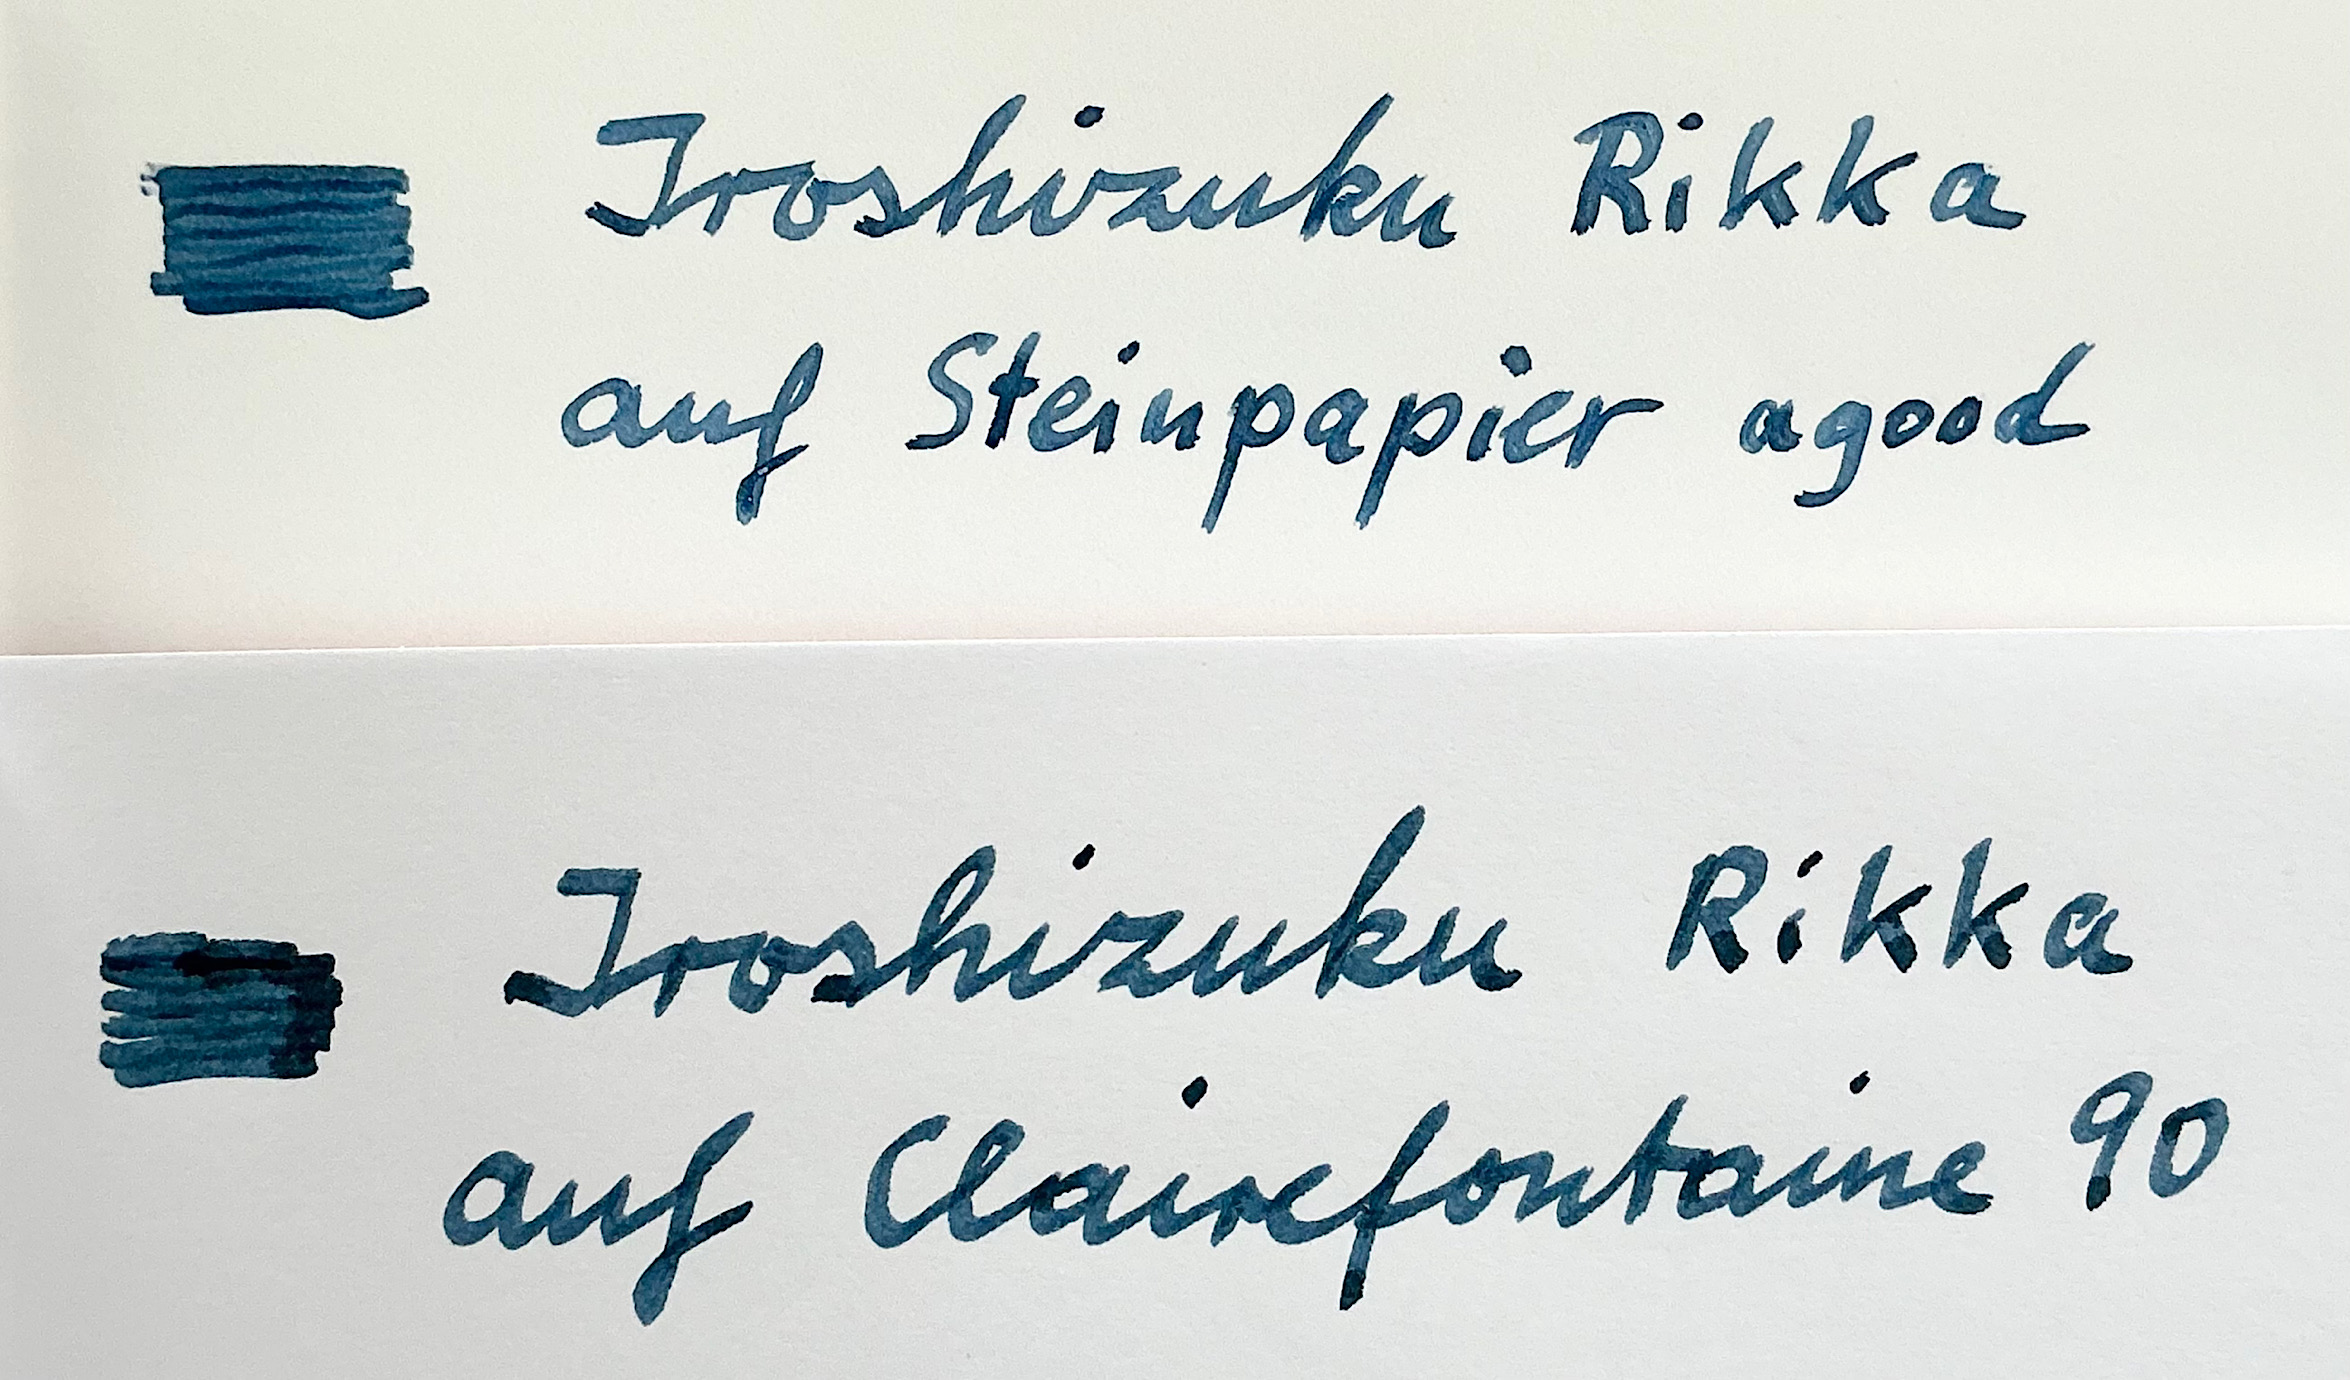 Iroshizuku Rikka
auf Steinpapier agood
Iroshizuku Rikka
auf Clairefontaine 90